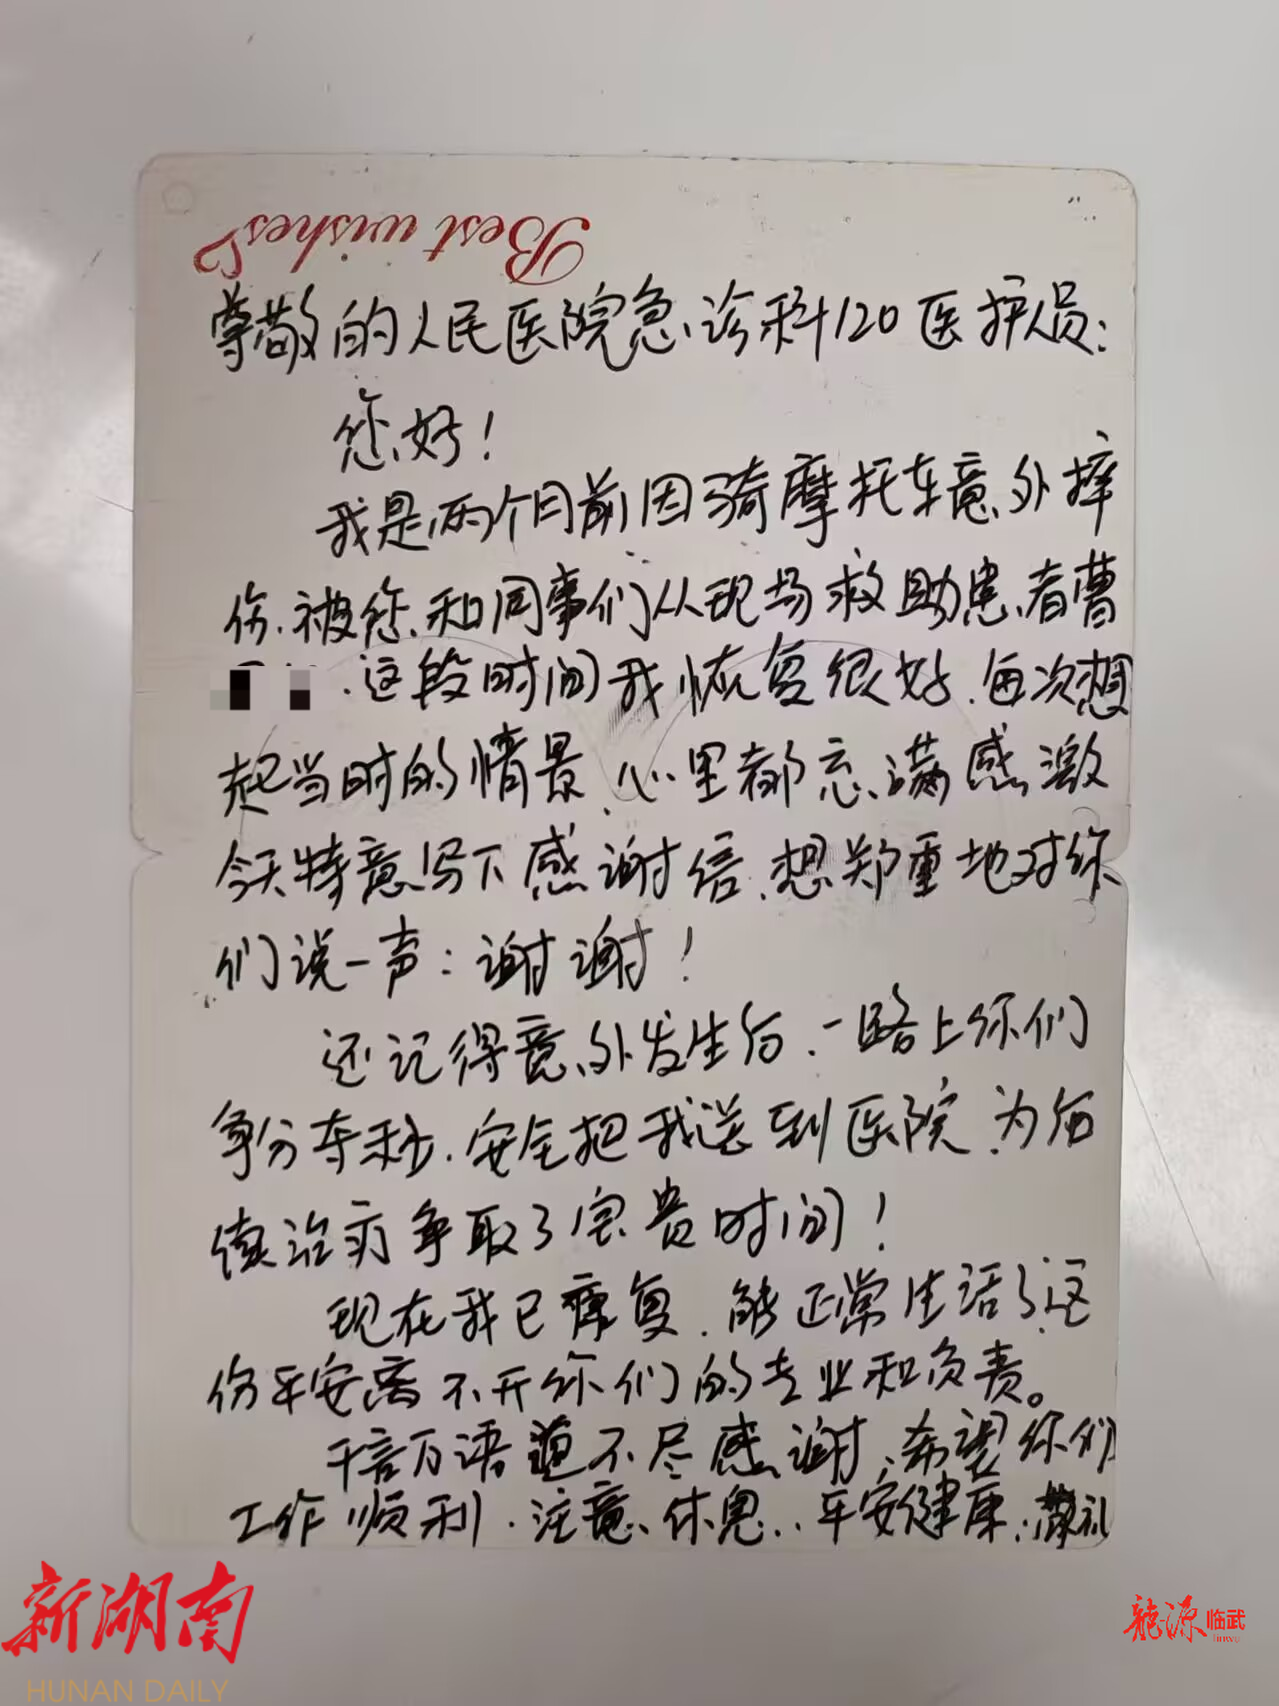 Best wishes
尊敬的人民医院急诊科120医护员：
您好！
我是两个月前因骑摩托车意外摔
伤.被您和同事们从现场救助患者曹
.这段时间我恢复很好.每次想
起当时的情景.心里都充满感激
今天特意写下感谢信.想郑重地对你
们说一声：谢谢！
还记得意外发生后.一路上你们
争分夺秒.安全把我送到医院.为后
续治疗争取了宝贵时间！
现在我已康复.能正常生活了.这
份平安离不开你们的专业和负责。
千言万语道不尽感谢,希望你们
工作顺利.注意休息..平安健康.
新湖南
HUNAN DAILY
龙源临武
linwu